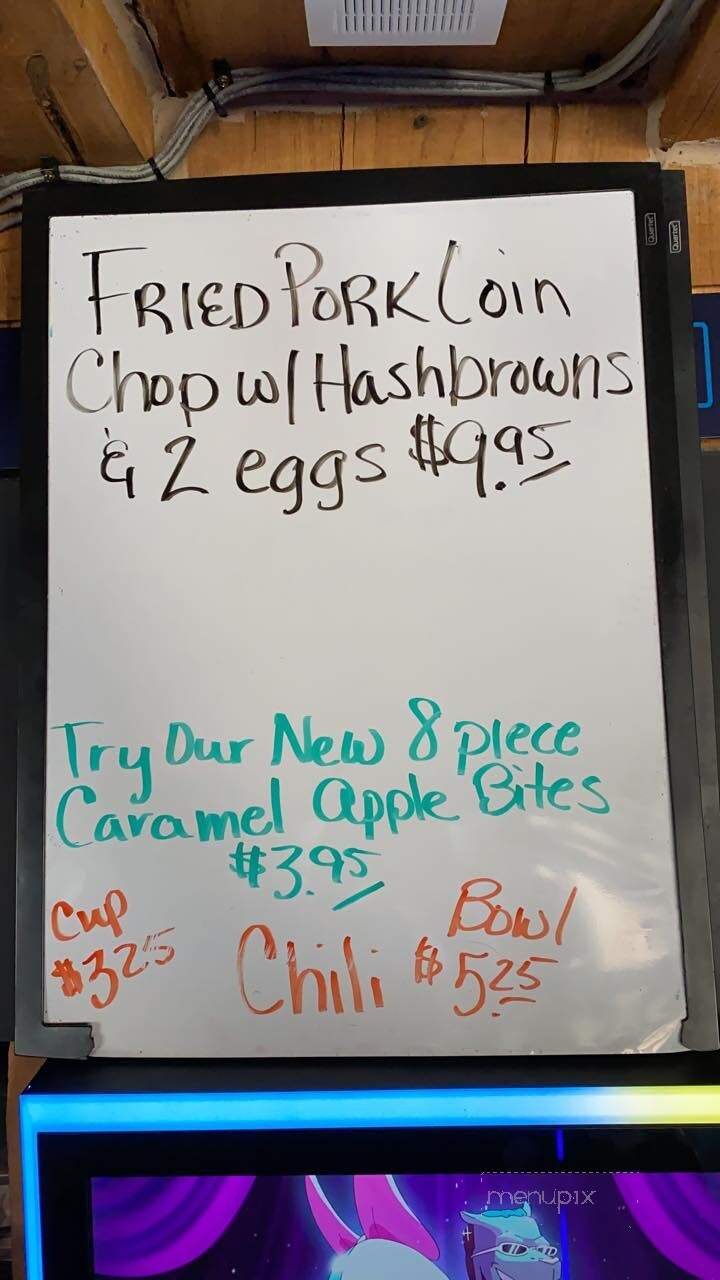 FRIED PORK Loin
Chop w/ Hashbrowns
& 2 eggs $9.95
Try Our New 8 piece
Caramel Apple Bites
$3.95
Cup
$3.25
Chili
Bowl
$5.25
Quartet
Quartet
menupix